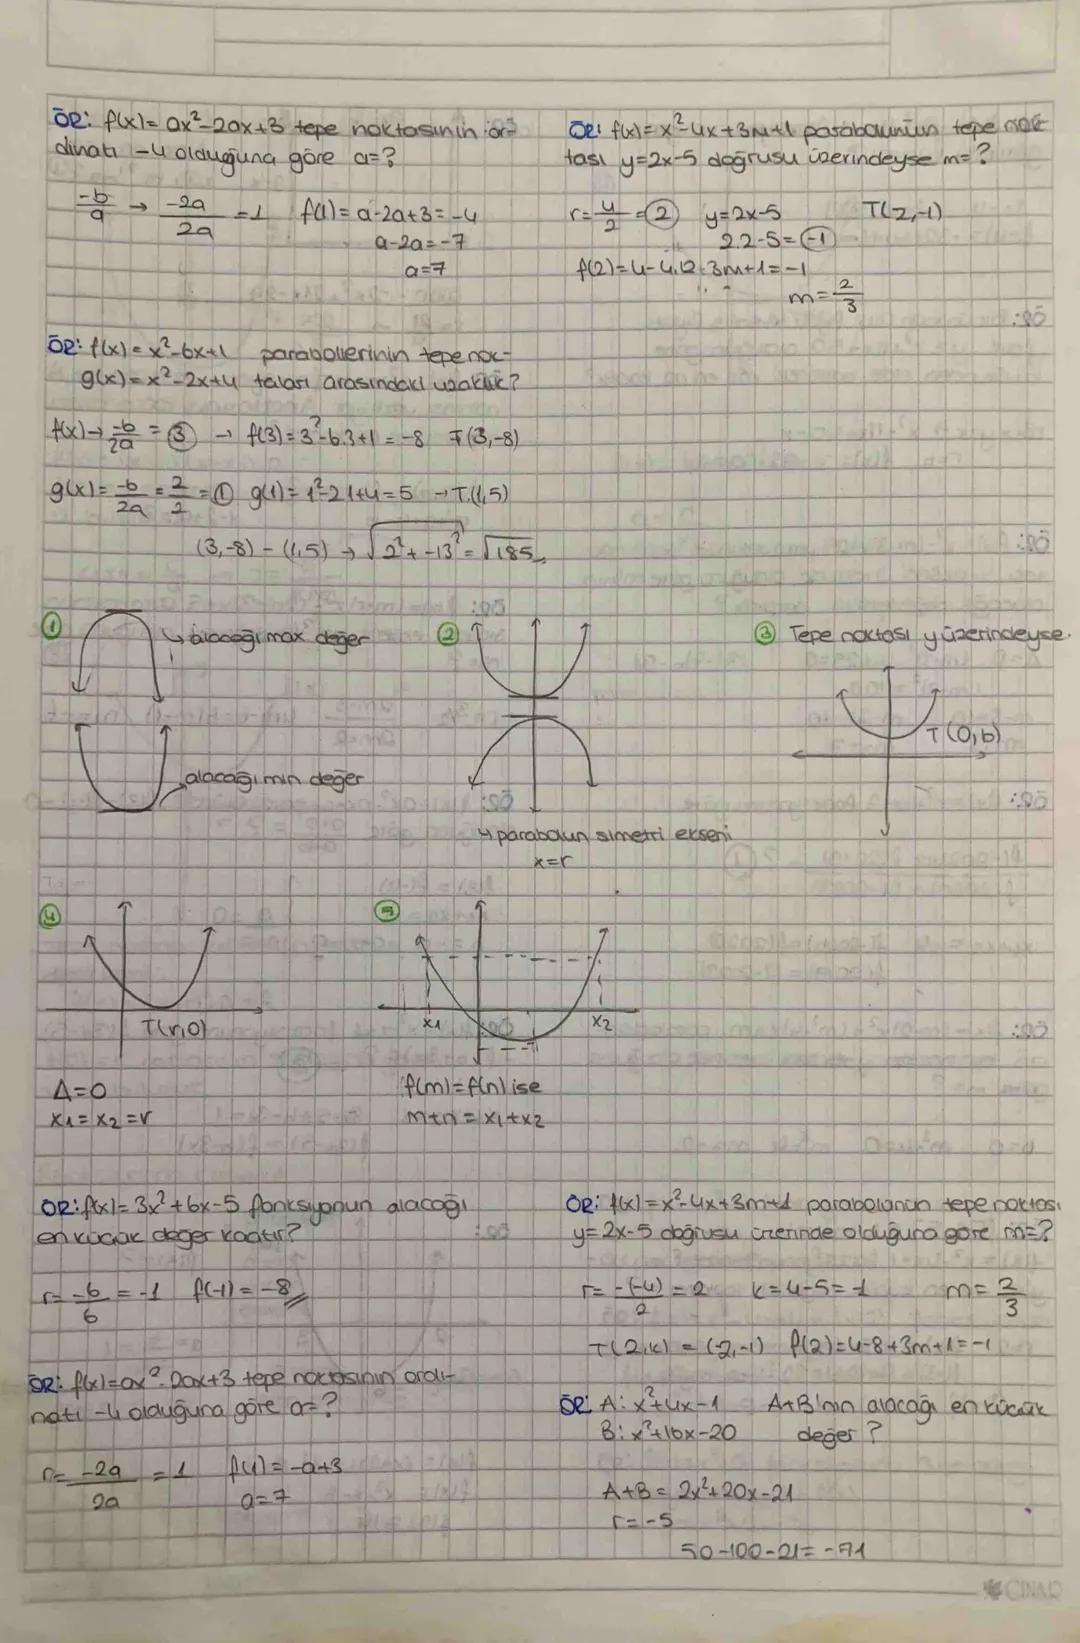 ÖR: f(x)= ax²-2ax+3 tepe noktasının or-
dinatı -4 olduğuna göre a=?
-b/a → -2a/2a =1 f(1)= a-2a+3=-4
a-2a=-7
a=7
ÖR: f(x)=x²-4x+3m+1 parabolünün tepe nok-
tası y=2x-5 doğrusu üzerindeyse m=?
r=4/2=2 y=2x-5 T(2,-1)
2.2-5=-1
f(2)=4-4.2+3m+1=-1
m=2/3
ÖR: f(x)=x²-6x+1 parabollerinin tepe nok-
g(x)=x²-2x+4 taları arasındaki uzaklık?
f(x)→ -b/2a = 3 → f(3)=3²-6.3+1=-8 T(3,-8)
g(x)= -b/2a = 2/2 = 1 g(1)=1²-2.1+4=5 →T.(1,5)
(3,-8) - (1,5) → √2²+-13² = √185
① alacağı max değer
alacağı min değer
②
↳ parabolün simetri ekseni
x=r
③ Tepe noktası y üzerindeyse.
T(0,b)
④
T(r,0)
Δ=0
x1=x2=r
x1 x2
f(m)=f(n) ise
m+n=x1+x2
ÖR: f(x)=3x²+6x-5 fonksiyonun alacağı
en küçük değer kaçtır?
r= -6/6 = -1 f(-1)=-8
ÖR: f(x)=ax²-2ax+3 tepe noktasının ordi-
natı -4 olduğuna göre a=?
r= -2a/2a = 1 f(1)=-a+3
a=7
ÖR: f(x)=x²-4x+3m+1 parabolünün tepe noktası
y=2x-5 doğrusu üzerinde olduğuna göre m=?
r= -(-4)/2 = 2 k=4-5=-1 m=2/3
T(2,k) = (2,-1) f(2)=4-8+3m+1=-1
ÖR: A: x²+4x-1 A+B'nin alacağı en küçük
B: x²+16x-20 değer?
A+B= 2x²+20x-21
r=-5
50-100-21=-71
ÇINAR